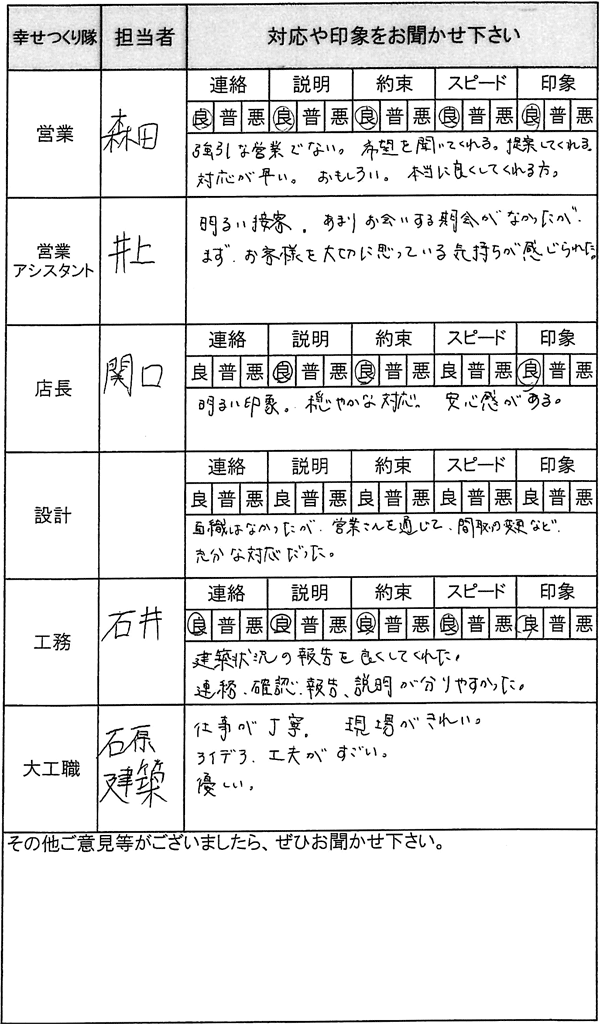 幸せつくり隊 担当者 対応や印象をお聞かせ下さい
営業 森田
連絡 説明 約束 スピード 印象
良 普 悪 良 普 悪 良 普 悪 良 普 悪 良 普 悪
強引な営業でない。 希望を聞いてくれる。提案してくれる
対応が早い。 おもしろい。 本当に良くしてくれる方。
営業
アシスタント 井上
明るい接客。あまりお会いする期会がなかったが、
まず、お客様を大切に思っている気持ちが感じられた。
店長 関口
連絡 説明 約束 スピード 印象
良 普 悪 良 普 悪 良 普 悪 良 普 悪 良 普 悪
明るい印象。穏やかな対応。 安心感がある。
設計
連絡 説明 約束 スピード 印象
良 普 悪 良 普 悪 良 普 悪 良 普 悪 良 普 悪
はなかったが、営業さんを通じて、間取の変更など、
充分な対応だった。
工務 石井
連絡 説明 約束 スピード 印象
良 普 悪 良 普 悪 良 普 悪 良 普 悪 良 普 悪
建築状況の報告を良くしてくれた。
連絡、確認、報告、説明が分りやすかった。
大工職 石原
建築
仕事が丁寧。 現場がきれい。
工夫がすごい。
優しい。
その他ご意見等がございましたら、ぜひお聞かせ下さい。